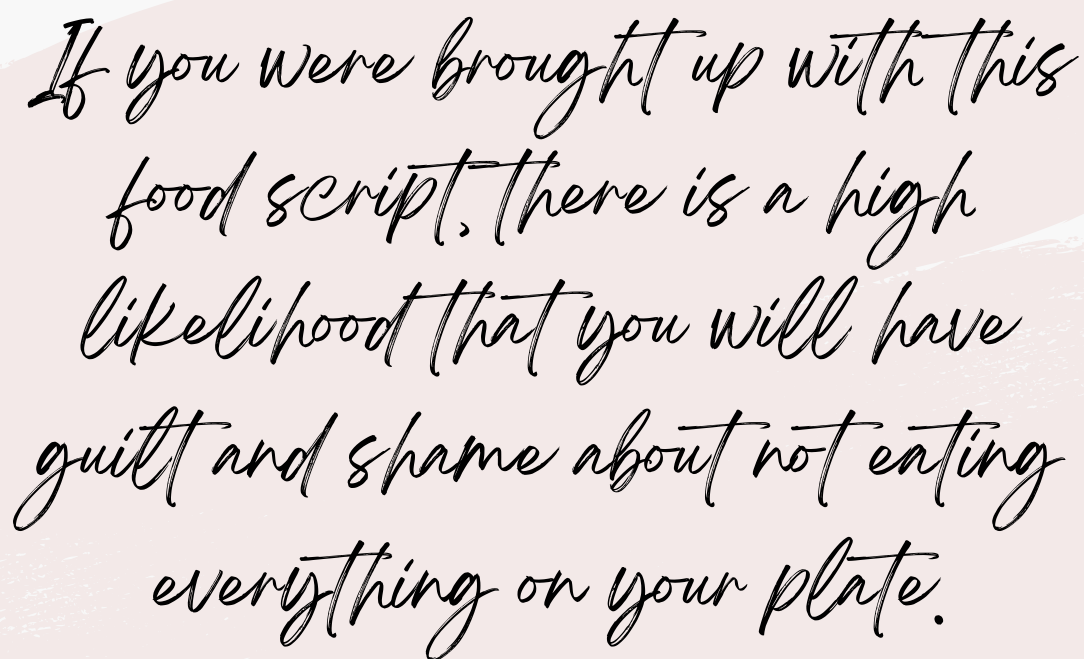 If you were brought up with this
food script, there is a high
likelihood that you will have
guilt and shame about not eating
everything on your plate.